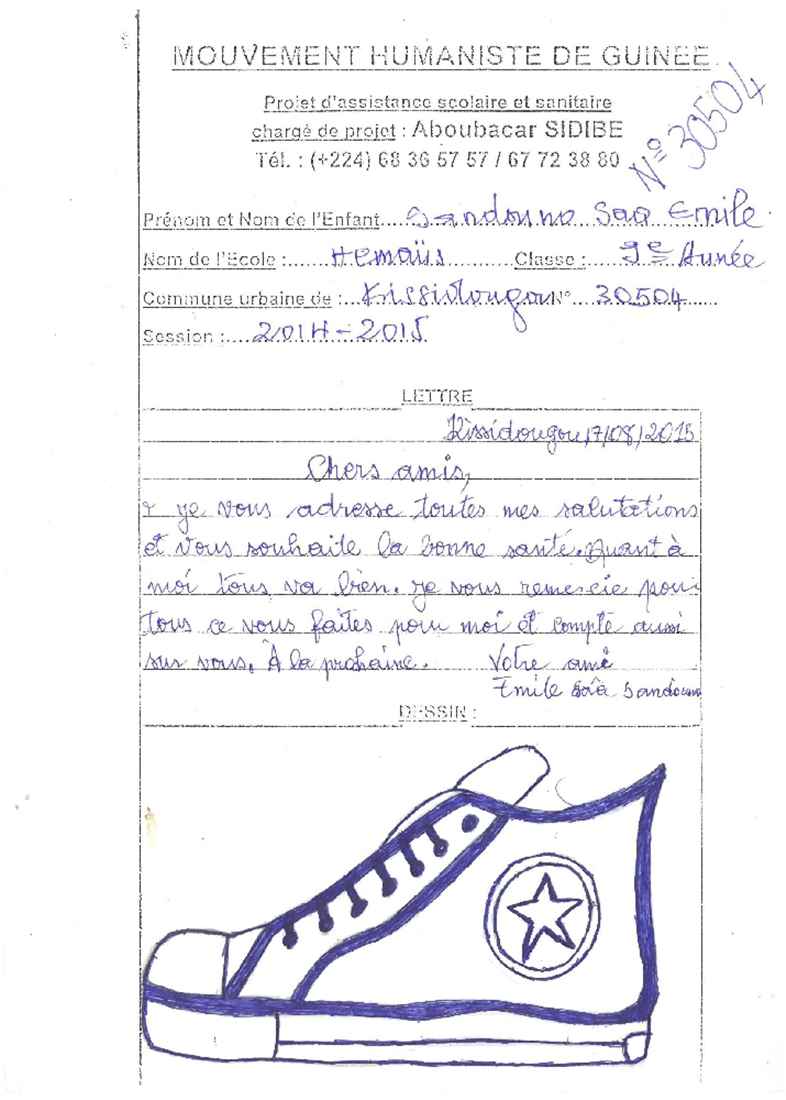 MOUVEMENT HUMANISTE DE GUINEE
Projet d'assistance scolaire et sanitaire
chargé de projet : Aboubacar SIDIBE
Tél. : (+224) 68 36 57 57 / 67 72 38 80
N° 30504
Prénom et Nom de l'Enfant....Sandouno Saa Emile.
Nom de l'Ecole :......Hemaüs..........Classe :....9e Année
Commune urbaine de :..Kissidougou N°...30504......
Session :....2014-2015
LETTRE
Kissidougou, 17/08/2015
Chers amis,
je vous adresse toutes mes salutations
et vous souhaite la bonne santé. Quant à
moi tous va bien. je vous remercie pour
tous ce vous faites pour moi et compte aussi
sur vous. À la prohaine. Votre ami
Emile Saa Sandouno
DESSIN :